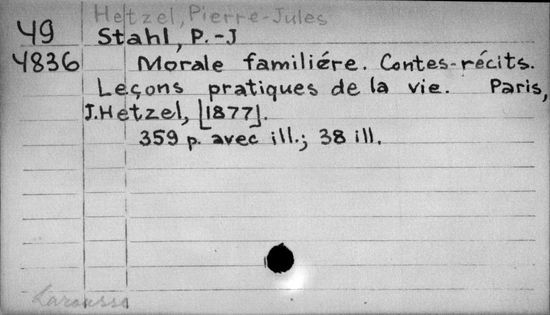 Hetzel, Pierre-Jules
49 Stahl, P.-J
4836 Morale familiére. Contes-récits.
Leçons pratiques de la vie. Paris,
J.Hetzel, [1877].
359 p. avec ill.; 38 ill.
Larousse